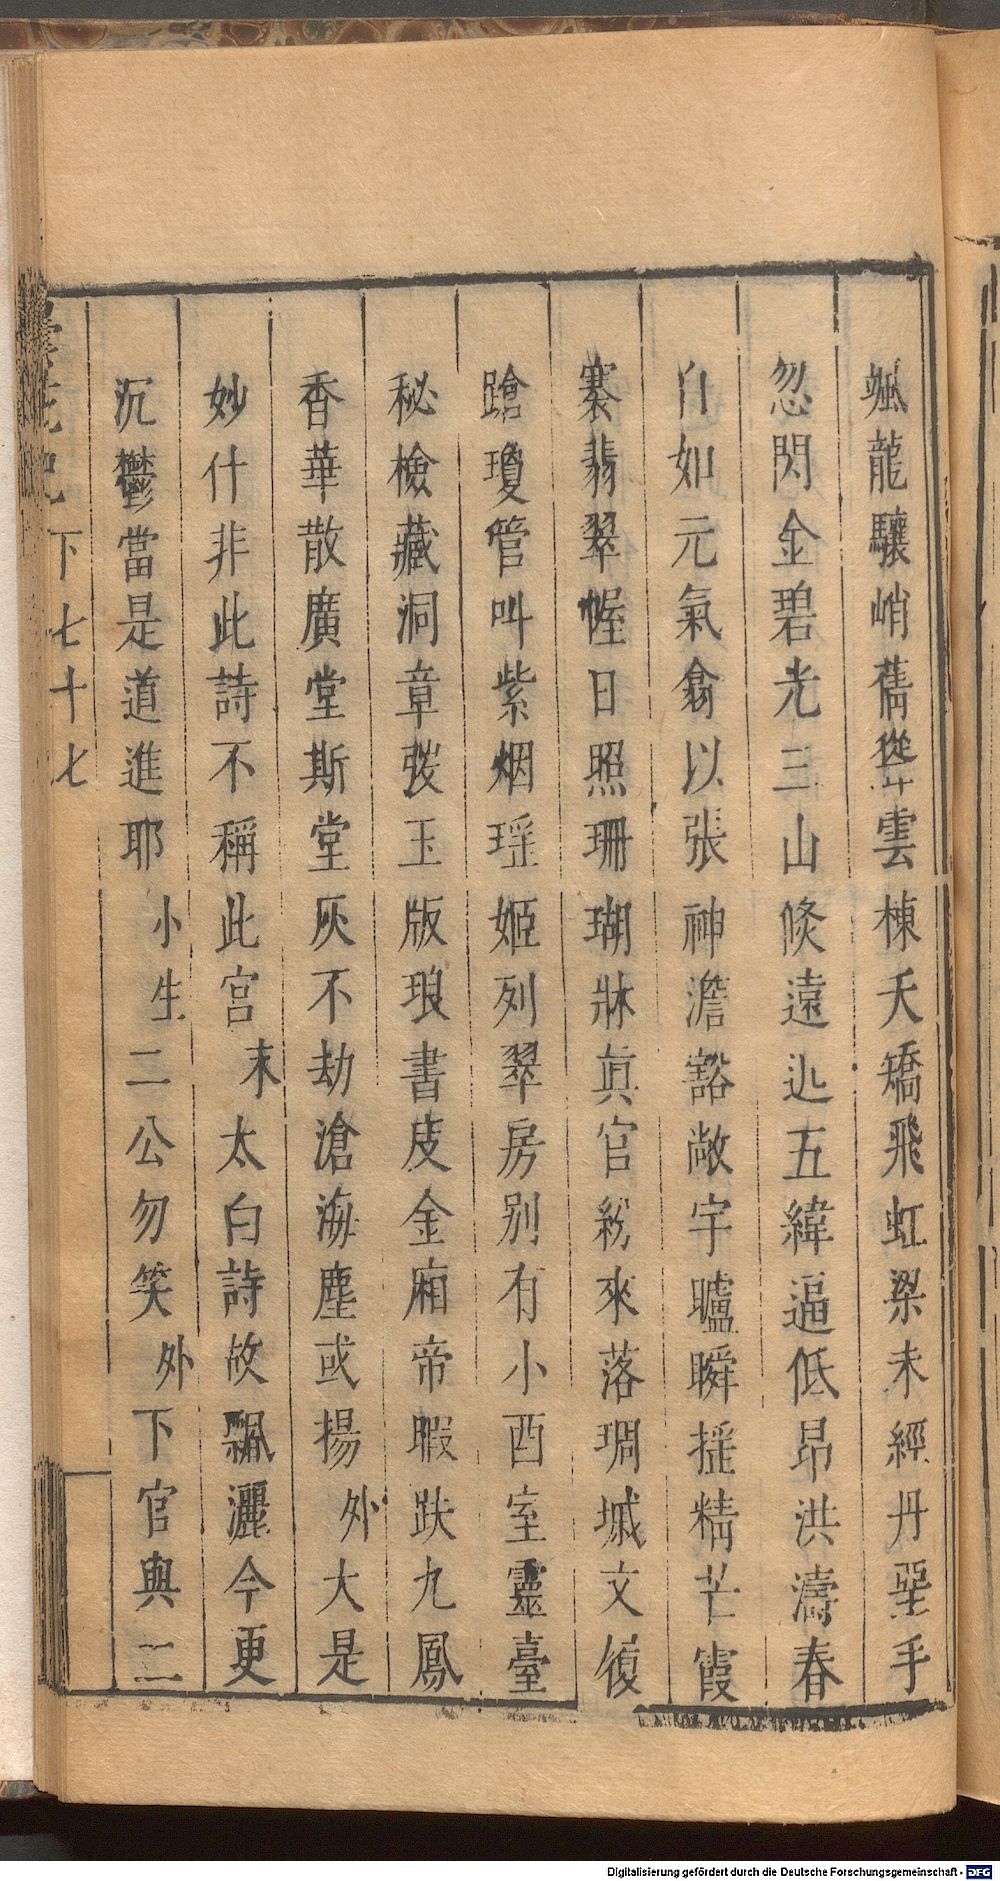 颯龍驤峭舊從牛雲棟夭矯飛虹梁未經丹堊手
忽閃金碧光三山倐遠迯五緯逼低昂洪濤春
白如元氣翕以張神澹豁敞宇曠瞬揺精芒霞
褰翡翠幄日照珊瑚牀眞官紛來落琱墄文復
蹌瓊管叫紫烟瑶姬列翠房别有小酉室靈臺
秘檢藏洞章葢玉版琅書庋金廂帝暇趺九鳳
香華散廣堂斯堂灰不劫滄海塵或揚 外大是
妙什非此詩不稱此宫 末太白詩故飄灑今更
沉鬱當是道進耶 小生二公勿笑 外下官與二
曇花記 下 七十七
Digitalisierung gefördert durch die Deutsche Forschungsgemeinschaft - DFG